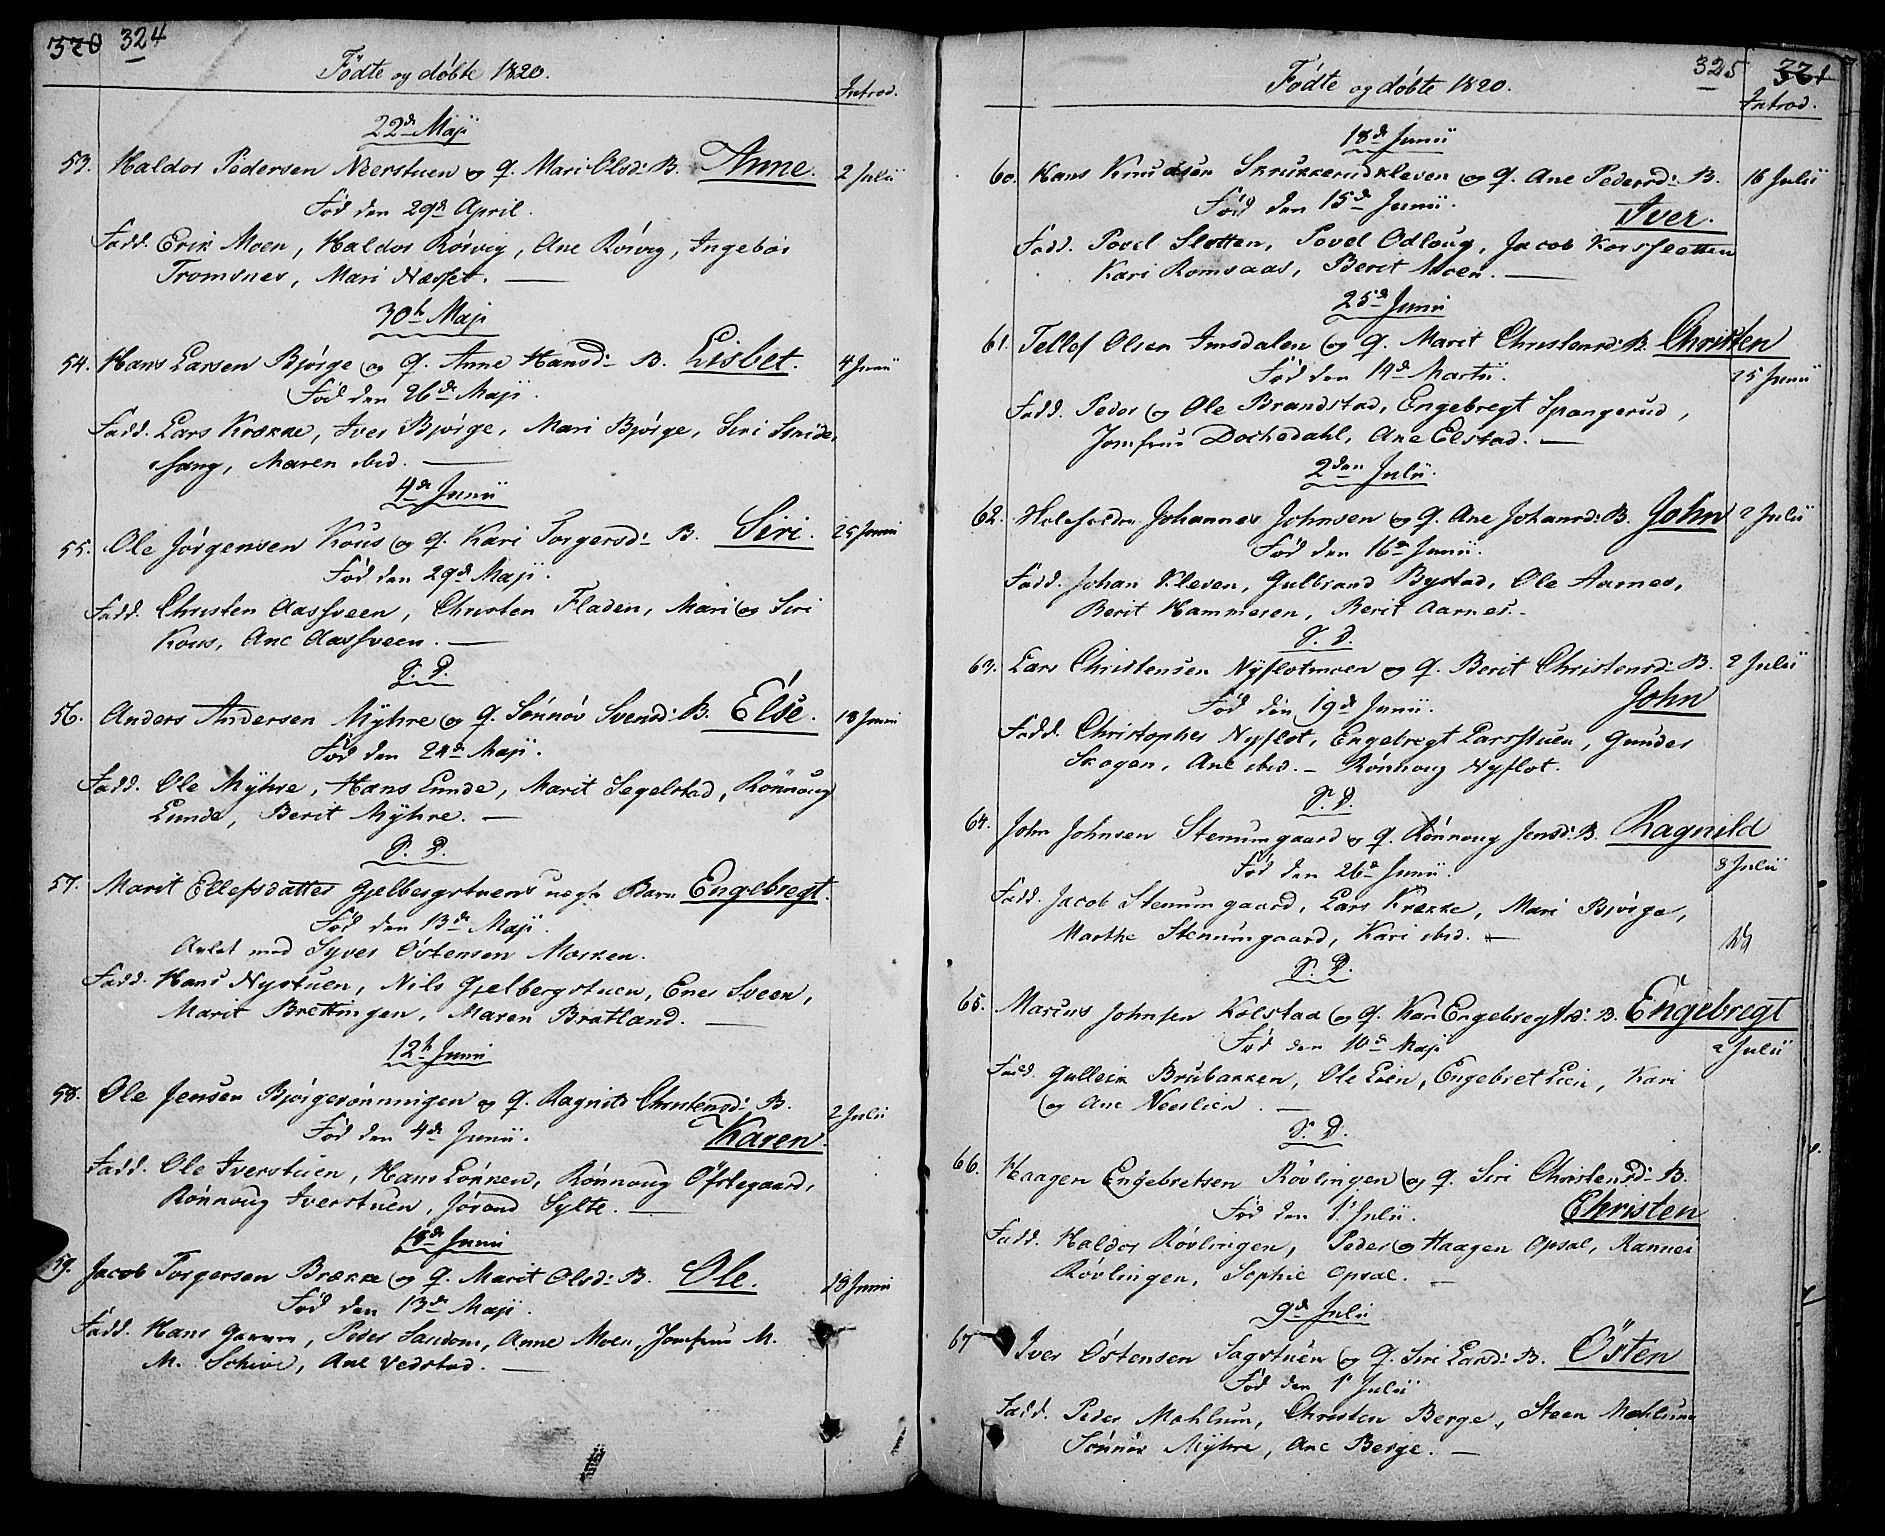 320 324
Födte og döbte 1820.
Introd.
22de Maji
53. Haldor Pedersen Neerstuen og q. Mari Olsd: B. Anne. 2 Julii
Föd den 29de April.
Fadd. Erik Moen, Haldor Rösvig, Ane Rösvig, Ingebör
Tromsnes, Mari Næsset.
30te Maji
54. Hans Larsen Bjórge og q. Anne Hansd: B. Lisbet. 4 Junii
Föd den 26de Maji.
Fadd. Lars Krække, Iver Bjórge, Mari Bjórge, Siri
Maren ibid.
4de Junii
55. Ole Jórgensen Kous og q. Kari Torgersd: B. Siri. 25 Junii
Föd den 29de Maji.
Fadd. Christen Aassveen, Christen Fladen, Mari og Siri
Kous, Ane Aassveen.
S. D.
56. Anders Andersen Myhre og q. Sönnöv Svensd: B. Else. 18 Junii
Föd den 24de Maji.
Fadd. Ole Myhre, Hans Lunde, Marit Segelstad, Rönnoug
Lunde, Berit Myhre.
S. D.
57. Marit Ellefsdatter Gjelbergstuens uægte Barn Engebregt.
Föd den 13de Maji.
Avlet med Syver Östensen Moxken.
Fadd. Hans Nystuen, Nils Gjelbergstuen, Ener Sveen,
Marit Brettingen, Maren Bratland.
12te Junii
58. Ole Jensen Bjórgerónningen og q. Ragnild Christensd: B. 2 Julii
Föd den 4de Junii. Karen.
Fadd. Ole Iverstuen, Hans Lónken, Rónnoug Öfstegaard,
Rónnoug Iverstuen, Jórand Sylte.
18de Junii
59. Jacob Torgersen Brække og q. Marit Olsd: B. Ole. 18 Junii
Föd den 13de Maji.
Fadd. Hans Peder Sandom, Anne Moen, Jomfrue M.
M. Schive, Ane Vedstad.
325 321
Födte og döbte 1820.
Introd.
18de Junii
60. Hans Knudsen Skrukkerudkleven og q. Ane Pedersd: B. 16 Julii
Föd den 15de Junii. Iver.
Fadd. Povel Sletten, Povel Odloug, Jacob Korssletten
Kari Romsaas, Berit Moen.
25de Junii
61. Tellef Olsen Imsdalen og q. Marit Christensd: B. Christen
Föd den 14de Martii. 25 Junii
Fadd. Peder og Ole Brandstad, Engebregt Spangerud,
Jomfrue Dochedahl, Ane Elstad.
2den Julii.
62. Johannes Johnsen og q. Ane Johansd: B. John 2 Julii
Föd den 16de Junii.
Fadd. Johan Kleven, Gulbrand Bystad, Ole Aarnes,
Berit Hammeren, Berit Aarnes.
S. D.
63. Lars Christensen Nyflotmoen og q. Berit Christensd: B. 2 Julii
Föd den 19de Junii. John
Fadd. Christopher Nyflot, Engebregt Larsstuen, Gunder
Skogen, Ane ibid. Rónnoug Nyflot.
S. D.
64. John Johnsen Stenumgaard og q. Rónnoug Jensd: B. Ragnild
Föd den 26de Junii. 8 Julii
Fadd. Jacob Stenumgaard, Lars Krække, Mari Bjórge,
Marthe Stenumgaard, Kari ibid.
S. D.
65. Marius Johnsen Kolstad og q. Kari Engebregtsd: B. Engebregt
Föd den 10de Maji 2 Julii
Fadd. Gulleik Brubakken, Ole Lien, Engebret Lien, Kari
og Ane Neerlien.
S. D.
66. Haagen Engebretsen Róvlingen og q. Siri Christensd: B.
Föd den 1. Julii. Christen
Fadd. Haldor Róvlingen, Peder og Haagen Opsal, Rannei
Róvlingen, Sophie Opsal.
9de Julii
67 Iver Östensen Sagstuen og q. Siri Larsd: B. Östen
Föd den 1. Julii
Fadd. Peder Mæhlum, Christen Berge, Steen Mæhlum
Sónnóv Myhre, Ane Berge.